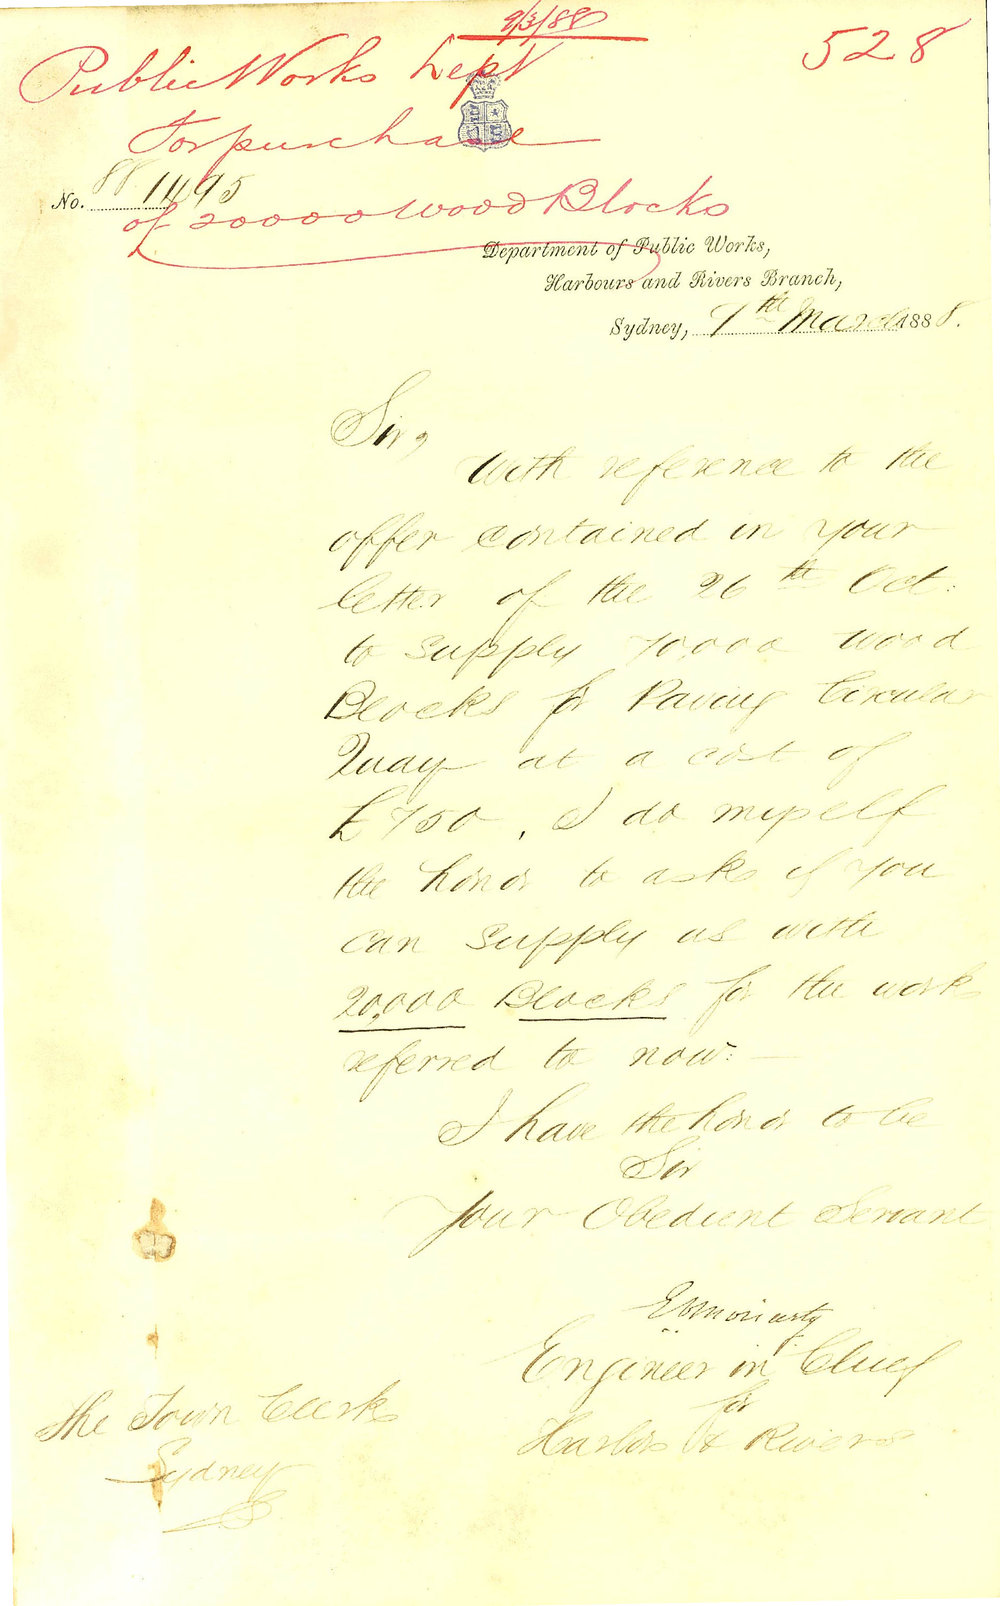 9/3/88
528
Public Works Dept
For purchase
No. 88 1495
of 20000 Wood Blocks
Department of Public Works,
Harbours and Rivers Branch,
Sydney, 7th March 1888.
Sir,
With reference to the
offer contained in your
letter of the 26th Oct:
to supply 70,000 wood
Blocks for Paving Circular
Quay at a cost of
£750, I do myself
the honor to ask if you
can supply us with
20,000 Blocks for the work
referred to now: —
I have the honor to be
Sir
Your Obedient Servant
E O Moriarty
Engineer in Chief
for
Harbors & Rivers
The Town Clerk
Sydney